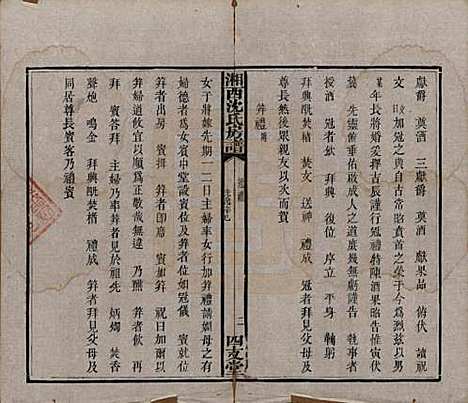 獻爵　奠酒　三獻爵　奠酒　獻果品　俯伏　讀祝
文　如冠之典自古昭然首之榮于今為烈茲以男
某年長將婚妥擇吉辰謹行冠禮特陳酒果昭告惟寅伏
冀　先靈垂佑啟成人之道多幾無虧謹告　執事者
授酒　冠者　拜興　復位　序立　平身　鞠躬
拜興　焚楮　焚文　送神　禮成　冠者見於父母及
尊長然後眾親友以次而賀
笄禮附
湘西沈氏房譜
冠禮
二
四支堂
女子將嫁先期一二日主婦率女行加笄禮請
婦德者為女賓中堂設賓位如冠儀　賓至主婦
笄者出房　賓揖　笄者即席　賓加笄　祝曰爾笄爾
婦道攸宜以順為正敬哉無違　乃醮　笄者再
拜　賓答拜　主婦乃率笄者見於祖先　炳燭　焚香
聲炮　鳴金　拜興　焚楮　禮成　笄者見父母及
同居尊長賓客乃禮賓